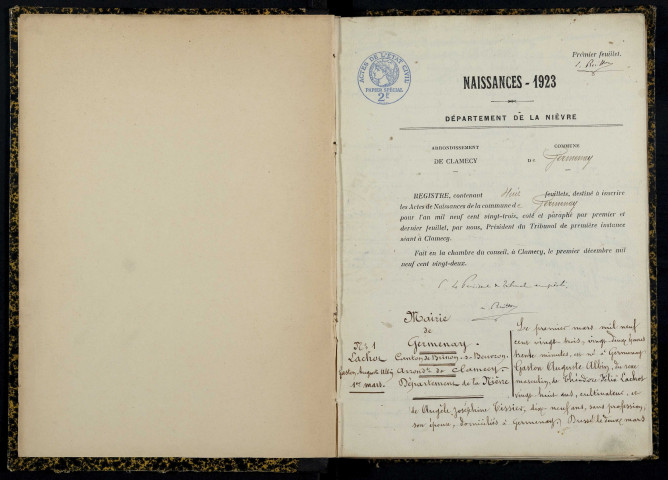 Prémier feuillet.
ACTES DE L'ETAT CIVIL
PAPIER SPECIAL
2F
NAISSANCES - 1923
DÉPARTEMENT DE LA NIÈVRE
ARRONDISSEMENT
DE CLAMECY
COMMUNE
DE Germenay
REGISTRE, contenant feuillets, destiné à inscrire
les Actes de Naissances de la commune de Germenay
pour l'an mil neuf cent vingt-trois, coté et paraphé par premier et
dernier feuillet, par nous, Président du Tribunal de première instance
séant à Clamecy.
Fait en la chambre du conseil, à Clamecy, le premier décembre mil
neuf cent vingt-deux.
Mairie
de
Germenay.
Canton de Brinon-s-Beuvron.
Arrondt de Clamecy.
Département de la Nièvre
No 1
Lachot
Gaston Auguste Albin
1er mars.
Le premier mars mil neuf
cent vingt trois, vingt deux heures
trente minutes, est né à Germenay
Gaston Auguste Albin, du sexe
masculin, de Théodore Lachot
vingt huit ans, cultivateur, et
de Angèle Joséphine Tissier, dix neuf ans, sans profession,
son épouse, domiciliés à Germenay. Dressé le deux mars